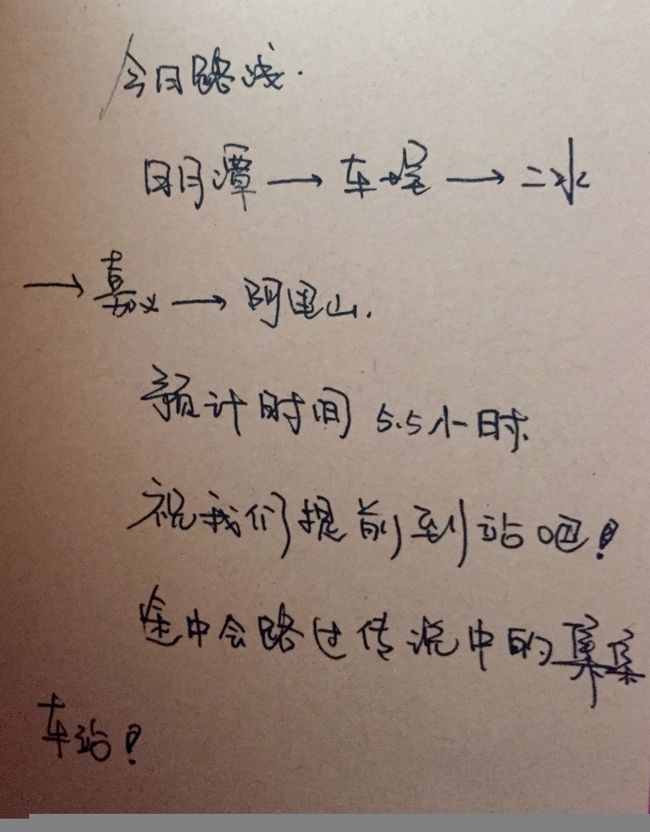 今日路线.
日月潭→车埕→二水
→嘉义→阿里山.
预计时间 5.5小时.
祝我们提前到站吧!
途中会路过传说中的集集
车站!